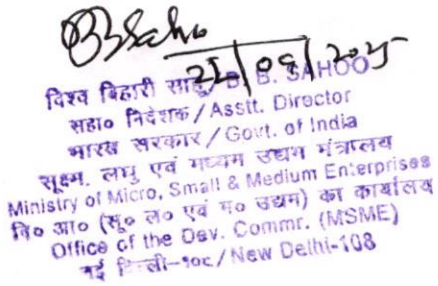 BBSaho
22/09/2025
विश्व बिहारी साहू/B. B. SAHOO
सहा० निदेशक/Asstt. Director
भारत सरकार/Govt. of India
सूक्ष्म, लघु एवं मध्यम उद्यम मंत्रालय
Ministry of Micro, Small & Medium Enterprises
वि० आ० (सू० ल० एवं म० उद्यम) का कार्यालय
Office of the Dev. Commr. (MSME)
नई दिल्ली-108/New Delhi-108